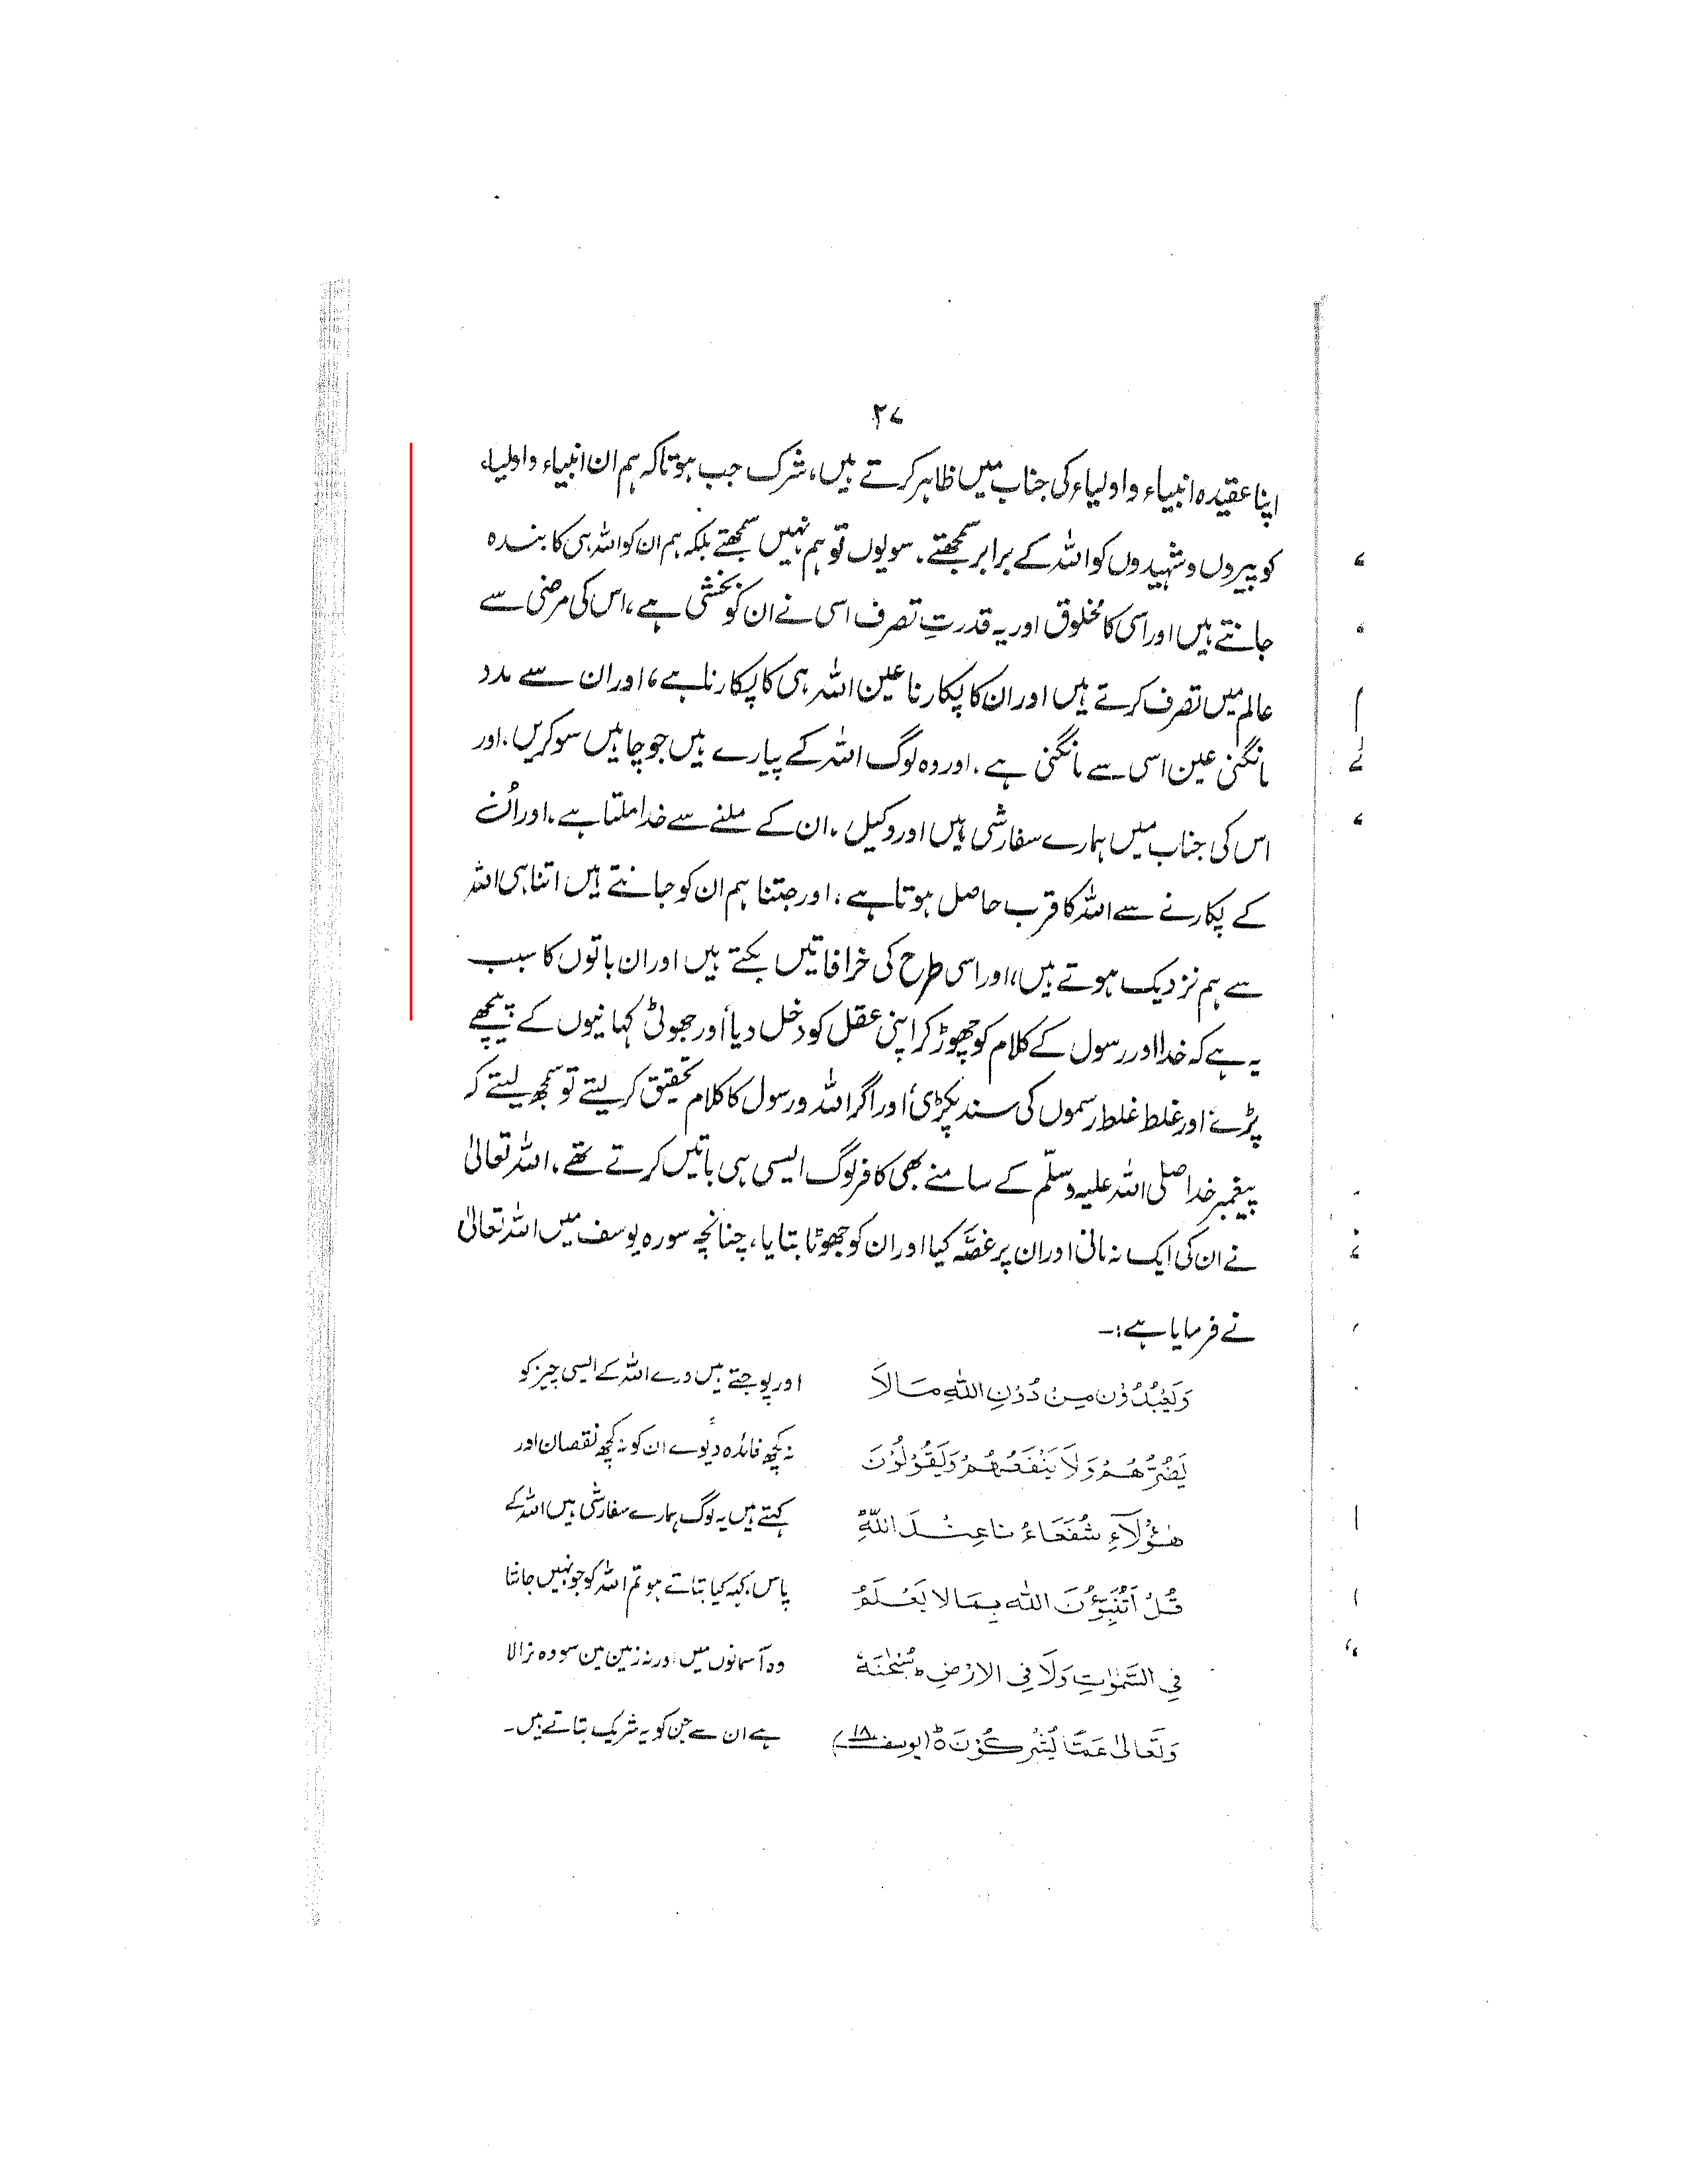 ۲۷
اپنا عقیدہ انبیاء و اولیاء کی جناب میں ظاہر کرتے ہیں، شرک جب ہوتا کہ ہم ان انبیاء و اولیاء
کو پیروں و شہیدوں کو اللہ کے برابر سمجھتے۔ سو یوں تو ہم نہیں سمجھتے بلکہ ہم ان کو اللہ ہی کا بندہ
جانتے ہیں اور اسی کا مخلوق اور یہ قدرتِ تصرف اسی نے ان کو بخشی ہے، اس کی مرضی سے
عالم میں تصرف کرتے ہیں اور ان کا پکارنا عین اللہ ہی کا پکارنا ہے، اور ان سے مدد
مانگنی عین اسی سے مانگنی ہے۔ اور وہ لوگ اللہ کے پیارے ہیں جو چاہیں سو کریں، اور
اس کی جناب میں ہمارے سفارشی ہیں اور وکیل ، ان کے ملنے سے خدا ملتا ہے، اور اُن
کے پکارنے سے اللہ کا قرب حاصل ہوتا ہے، اور جتنا ہم ان کو جانتے ہیں اتنا ہی اللہ
سے ہم نزدیک ہوتے ہیں، اور اسی طرح کی خرافاتیں بکتے ہیں اور ان باتوں کا سبب
یہ ہے کہ خدا اور رسول کے کلام کو چھوڑ کر اپنی عقل کو دخل دیا اور جھوٹی کہانیوں کے پیچھے
پڑے اور غلط غلط رسموں کی سند پکڑی اور اگر اللہ و رسول کا کلام تحقیق کر لیتے تو سمجھ لیتے کہ
پیغمبر خدا صلی اللہ علیہ وسلّم کے سامنے بھی کافر لوگ ایسی ہی باتیں کرتے تھے، اللہ تعالیٰ
نے ان کی ایک نہ مانی اور ان پر غصّہ کیا اور ان کو جھوٹا بتایا، چنانچہ سورہ یوسف میں اللہ تعالیٰ
نے فرمایا ہے:۔
وَيَعْبُدُوْنَ مِنْ دُوْنِ اللّٰهِ مَالَا
يَضُرُّهُمْ وَلَا يَنْفَعُهُمْ وَيَقُوْلُوْنَ
هٰٓؤُلَآءِ شُفَعَاءُ نَا عِنْدَ اللّٰهِ
قُلْ اَتُنَبِّؤُنَ اللّٰهَ بِمَا لَا يَعْلَمُ
فِي السَّمٰوٰتِ وَلَا فِي الْاَرْضِ ط سُبْحٰنَهٗ
وَتَعَالٰى عَمَّا يُشْرِكُوْنَ ہ (یوسف ۱۸)
اور پوجتے ہیں ورے اللہ کے ایسی چیز کو
نہ کچھ فائدہ دیوے ان کو نہ کچھ نقصان اور
کہتے ہیں یہ لوگ ہمارے سفارشی ہیں اللہ کے
پاس، کہہ کیا بتاتے ہو تم اللہ کو جو نہیں جانتا
وہ آسمانوں میں اور نہ زمین میں سو وہ نرالا
ہے ان سے جن کو یہ شریک بتاتے ہیں۔